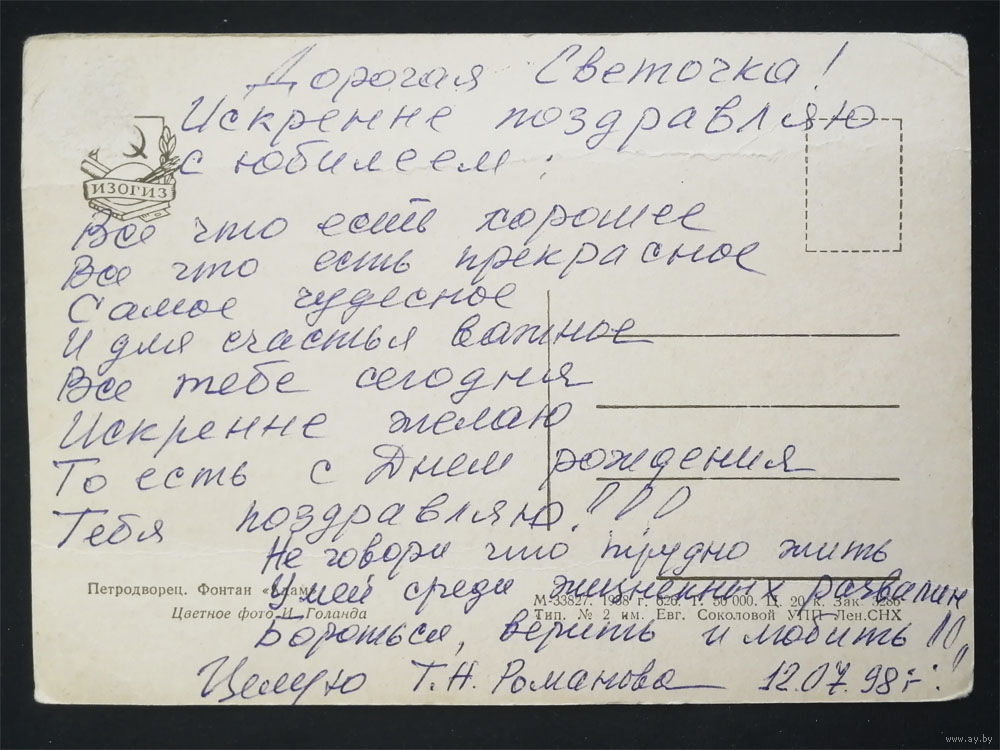 Дорогая Светочка!
Искренне поздравляю
с юбилеем!
ИЗОГИЗ
Все что есть хорошее
Все что есть прекрасное
Самое чудесное
И для счастья важное
Все тебе сегодня
Искренне желаю
То есть с Днем рождения
Тебя поздравляю!!!!
Не говори что трудно жить
Умей среди жизненных развалин
Бороться, верить и любить!!!
Целую Т.Н. Романова 12.07.98г.
Петродворец. Фонтан «Адам»
Цветное фото И. Голанда
М-33827. г. 626. Т. 50 000. Ц. 20 к. Зак.
Тип. № 2 им. Евг. Соколовой УПП Лен.СНХ
www.ay.by